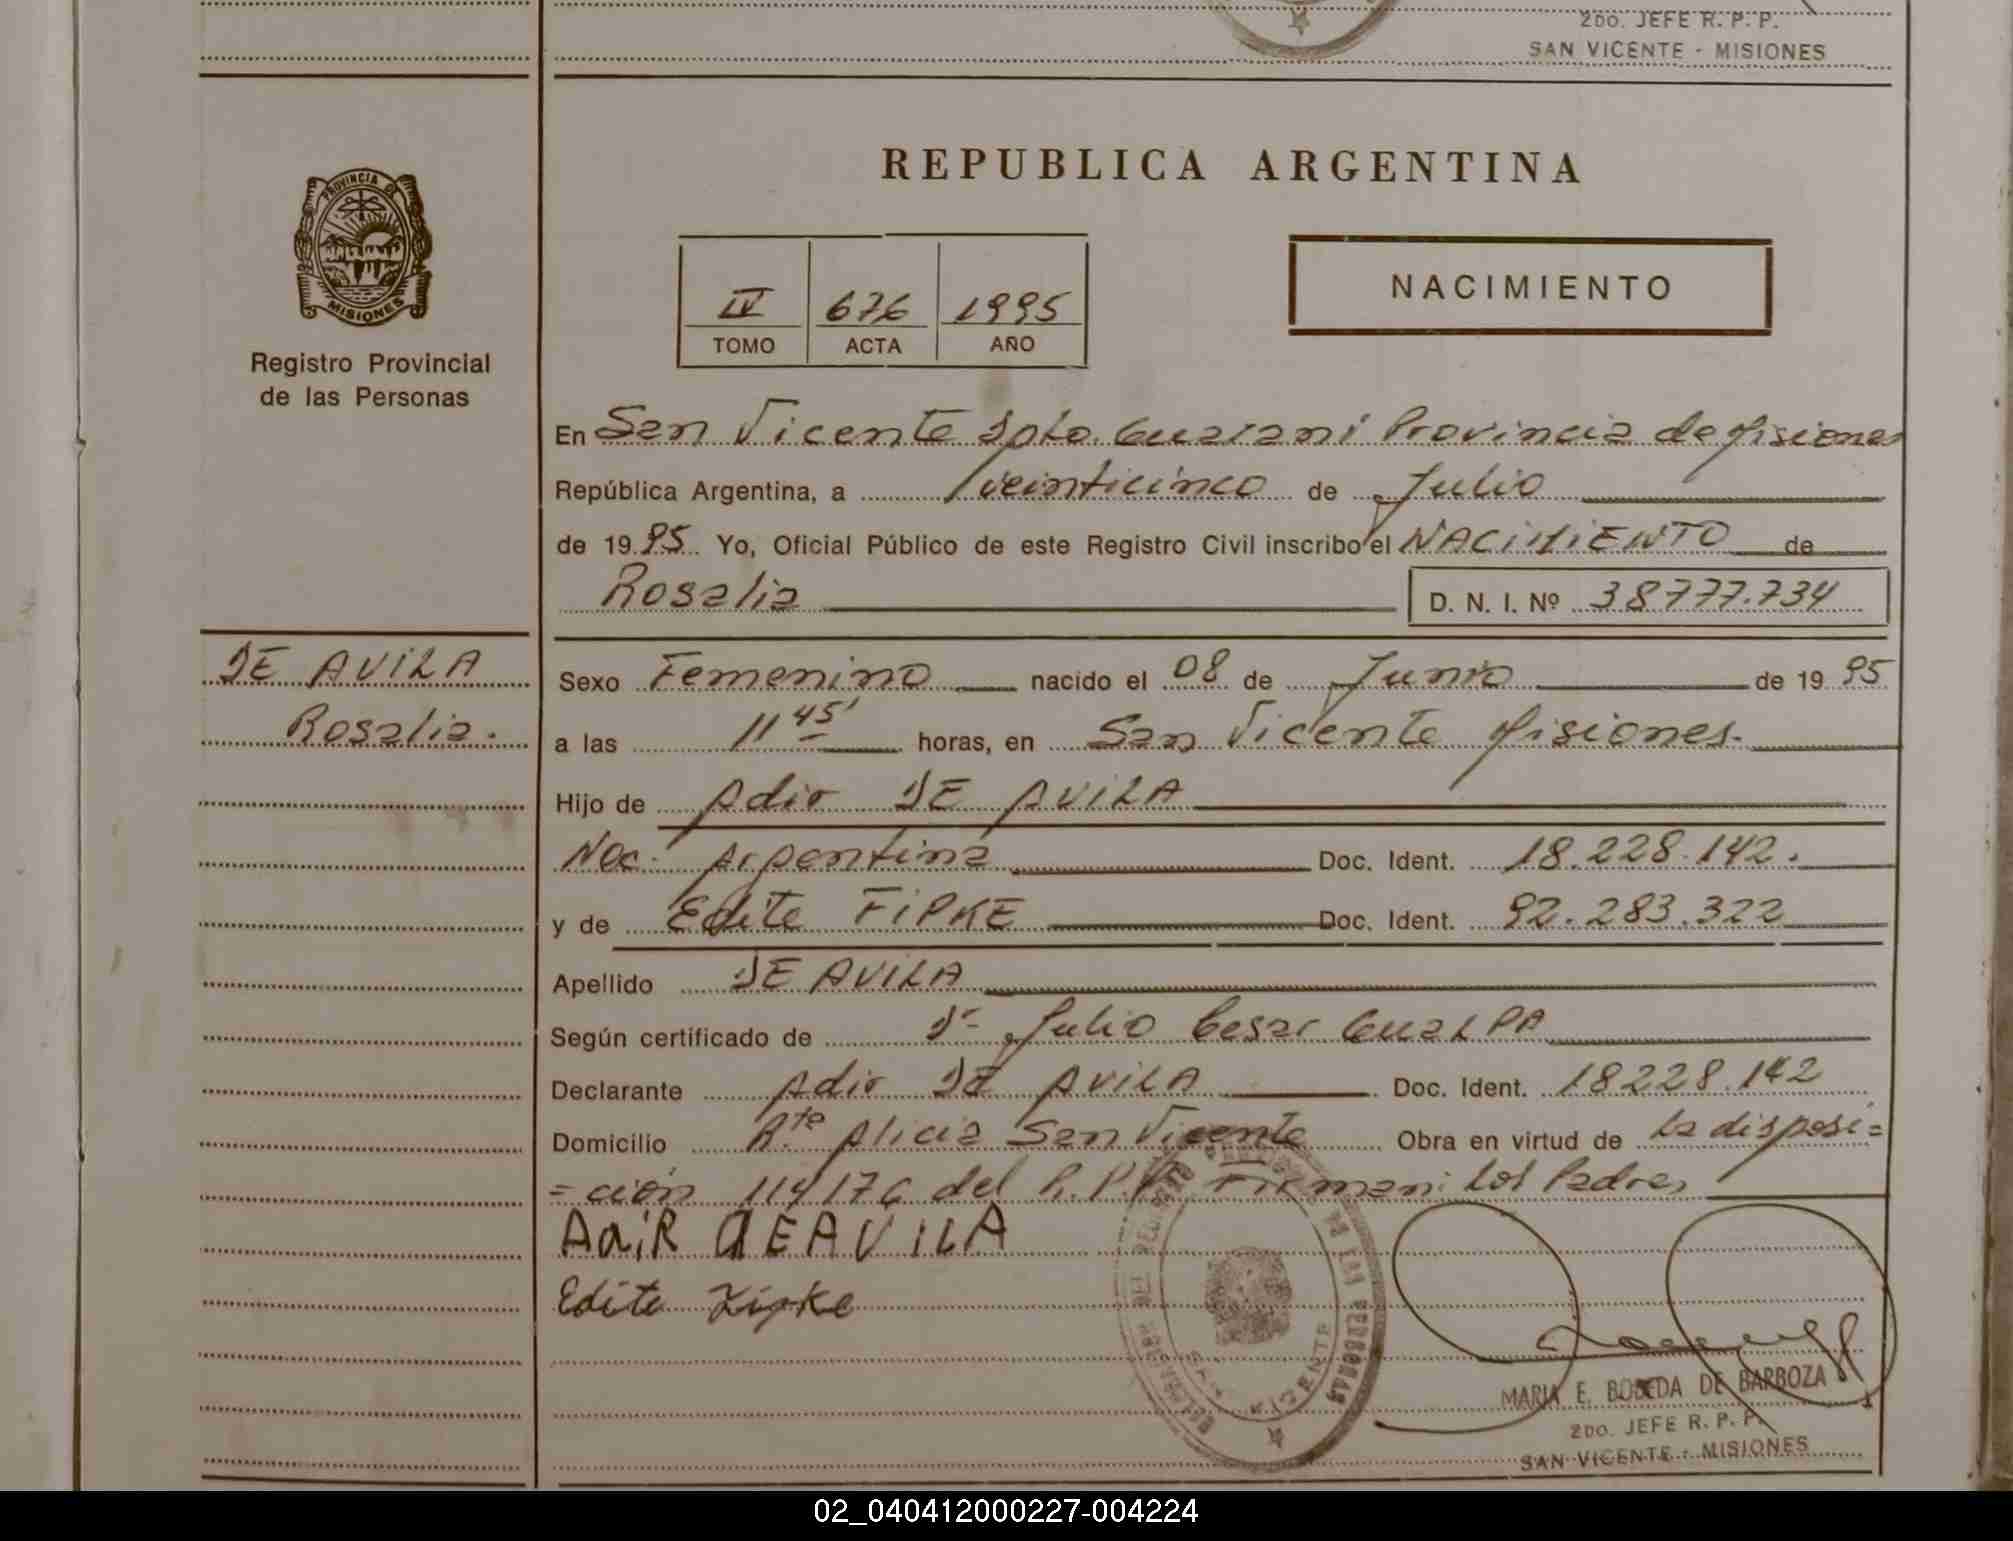 2DO. JEFE R. P. P.
SAN VICENTE - MISIONES
PROVINCIA DE
MISIONES
Registro Provincial
de las Personas
REPUBLICA ARGENTINA
IV 676 1995
TOMO ACTA AÑO
NACIMIENTO
En San Vicente Dpto. Guarani Provincia de Misiones
República Argentina, a veinticinco de Julio
de 19 95 Yo, Oficial Público de este Registro Civil inscribo el NACIMIENTO de
Rosalia D. N. I. Nº 38777.734
DE AVILA
Rosalia.
Sexo Femenino nacido el 08 de Junio de 19 95
a las 11 45' horas, en San Vicente Misiones.
Hijo de Adir DE AVILA
Nac. Argentina Doc. Ident. 18.228.142.
y de Edite FIPKE Doc. Ident. 92.283.322
Apellido DE AVILA
Según certificado de Dr Julio Cesar GualPA
Declarante Adir DE AVILA Doc. Ident. 18228.142
Domicilio Rta Alicia San Vicente Obra en virtud de la disposi=
=ción 114/76 del R.P.P. Firman: los Padres
AdiR dEAVILA
Edite Fipke
SAN VICENTE
MARIA E. BOBEDA DE BARBOZA
2DO. JEFE R. P. P.
SAN VICENTE - MISIONES
02_040412000227-004224